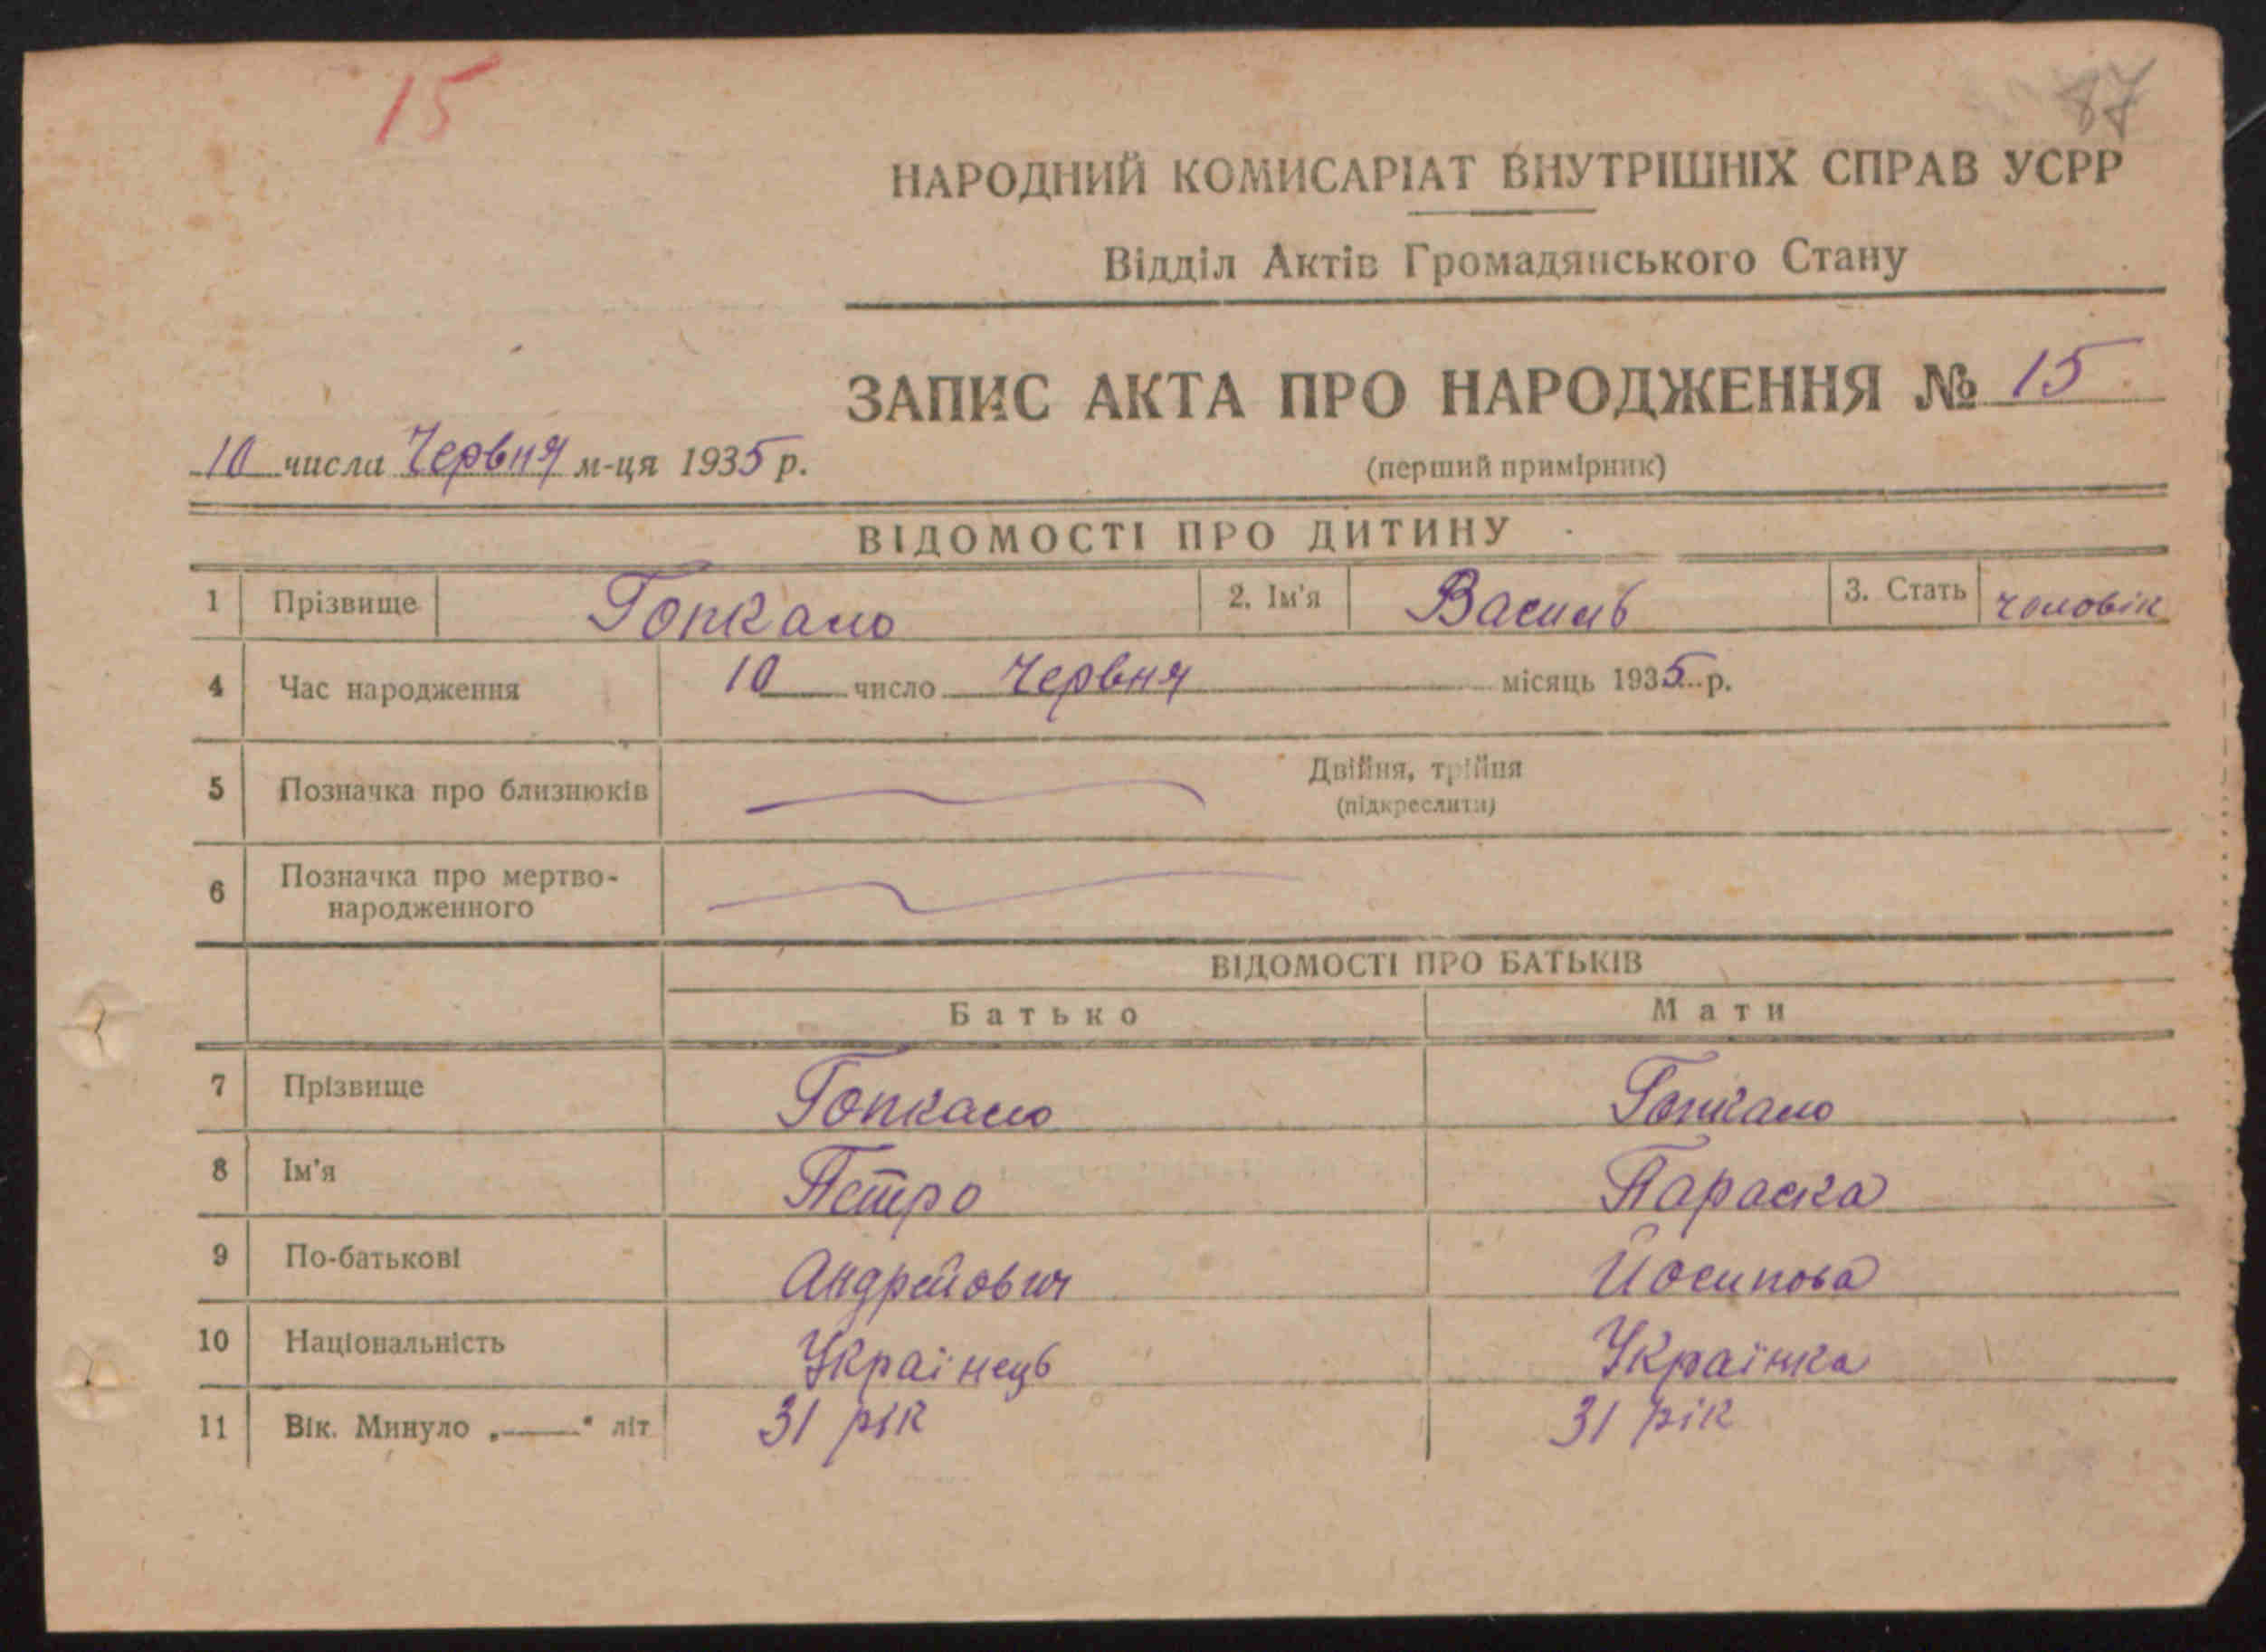 15
87
НАРОДНИЙ КОМИСАРІАТ ВНУТРІШНІХ СПРАВ УСРР
Відділ Актів Громадянського Стану
ЗАПИС АКТА ПРО НАРОДЖЕННЯ № 15
10 числа Червня м-ця 1935 р.
(перший примірник)
ВІДОМОСТІ ПРО ДИТИНУ
1 Прізвище Гопкало 2. Ім'я Василь 3. Стать чоловік
4 Час народження 10 число Червня місяць 1935 р.
5 Позначка про близнюків Двійня, трійня
(підкреслити)
6 Позначка про мертво-
народженного
ВІДОМОСТІ ПРО БАТЬКІВ
Батько Мати
7 Прізвище Гопкало Гопкало
8 Ім'я Петро Параска
9 По-батькові Андрейович Йосипова
10 Національність Українець Українка
11 Вік. Минуло „——" літ 31 рік 31 рік